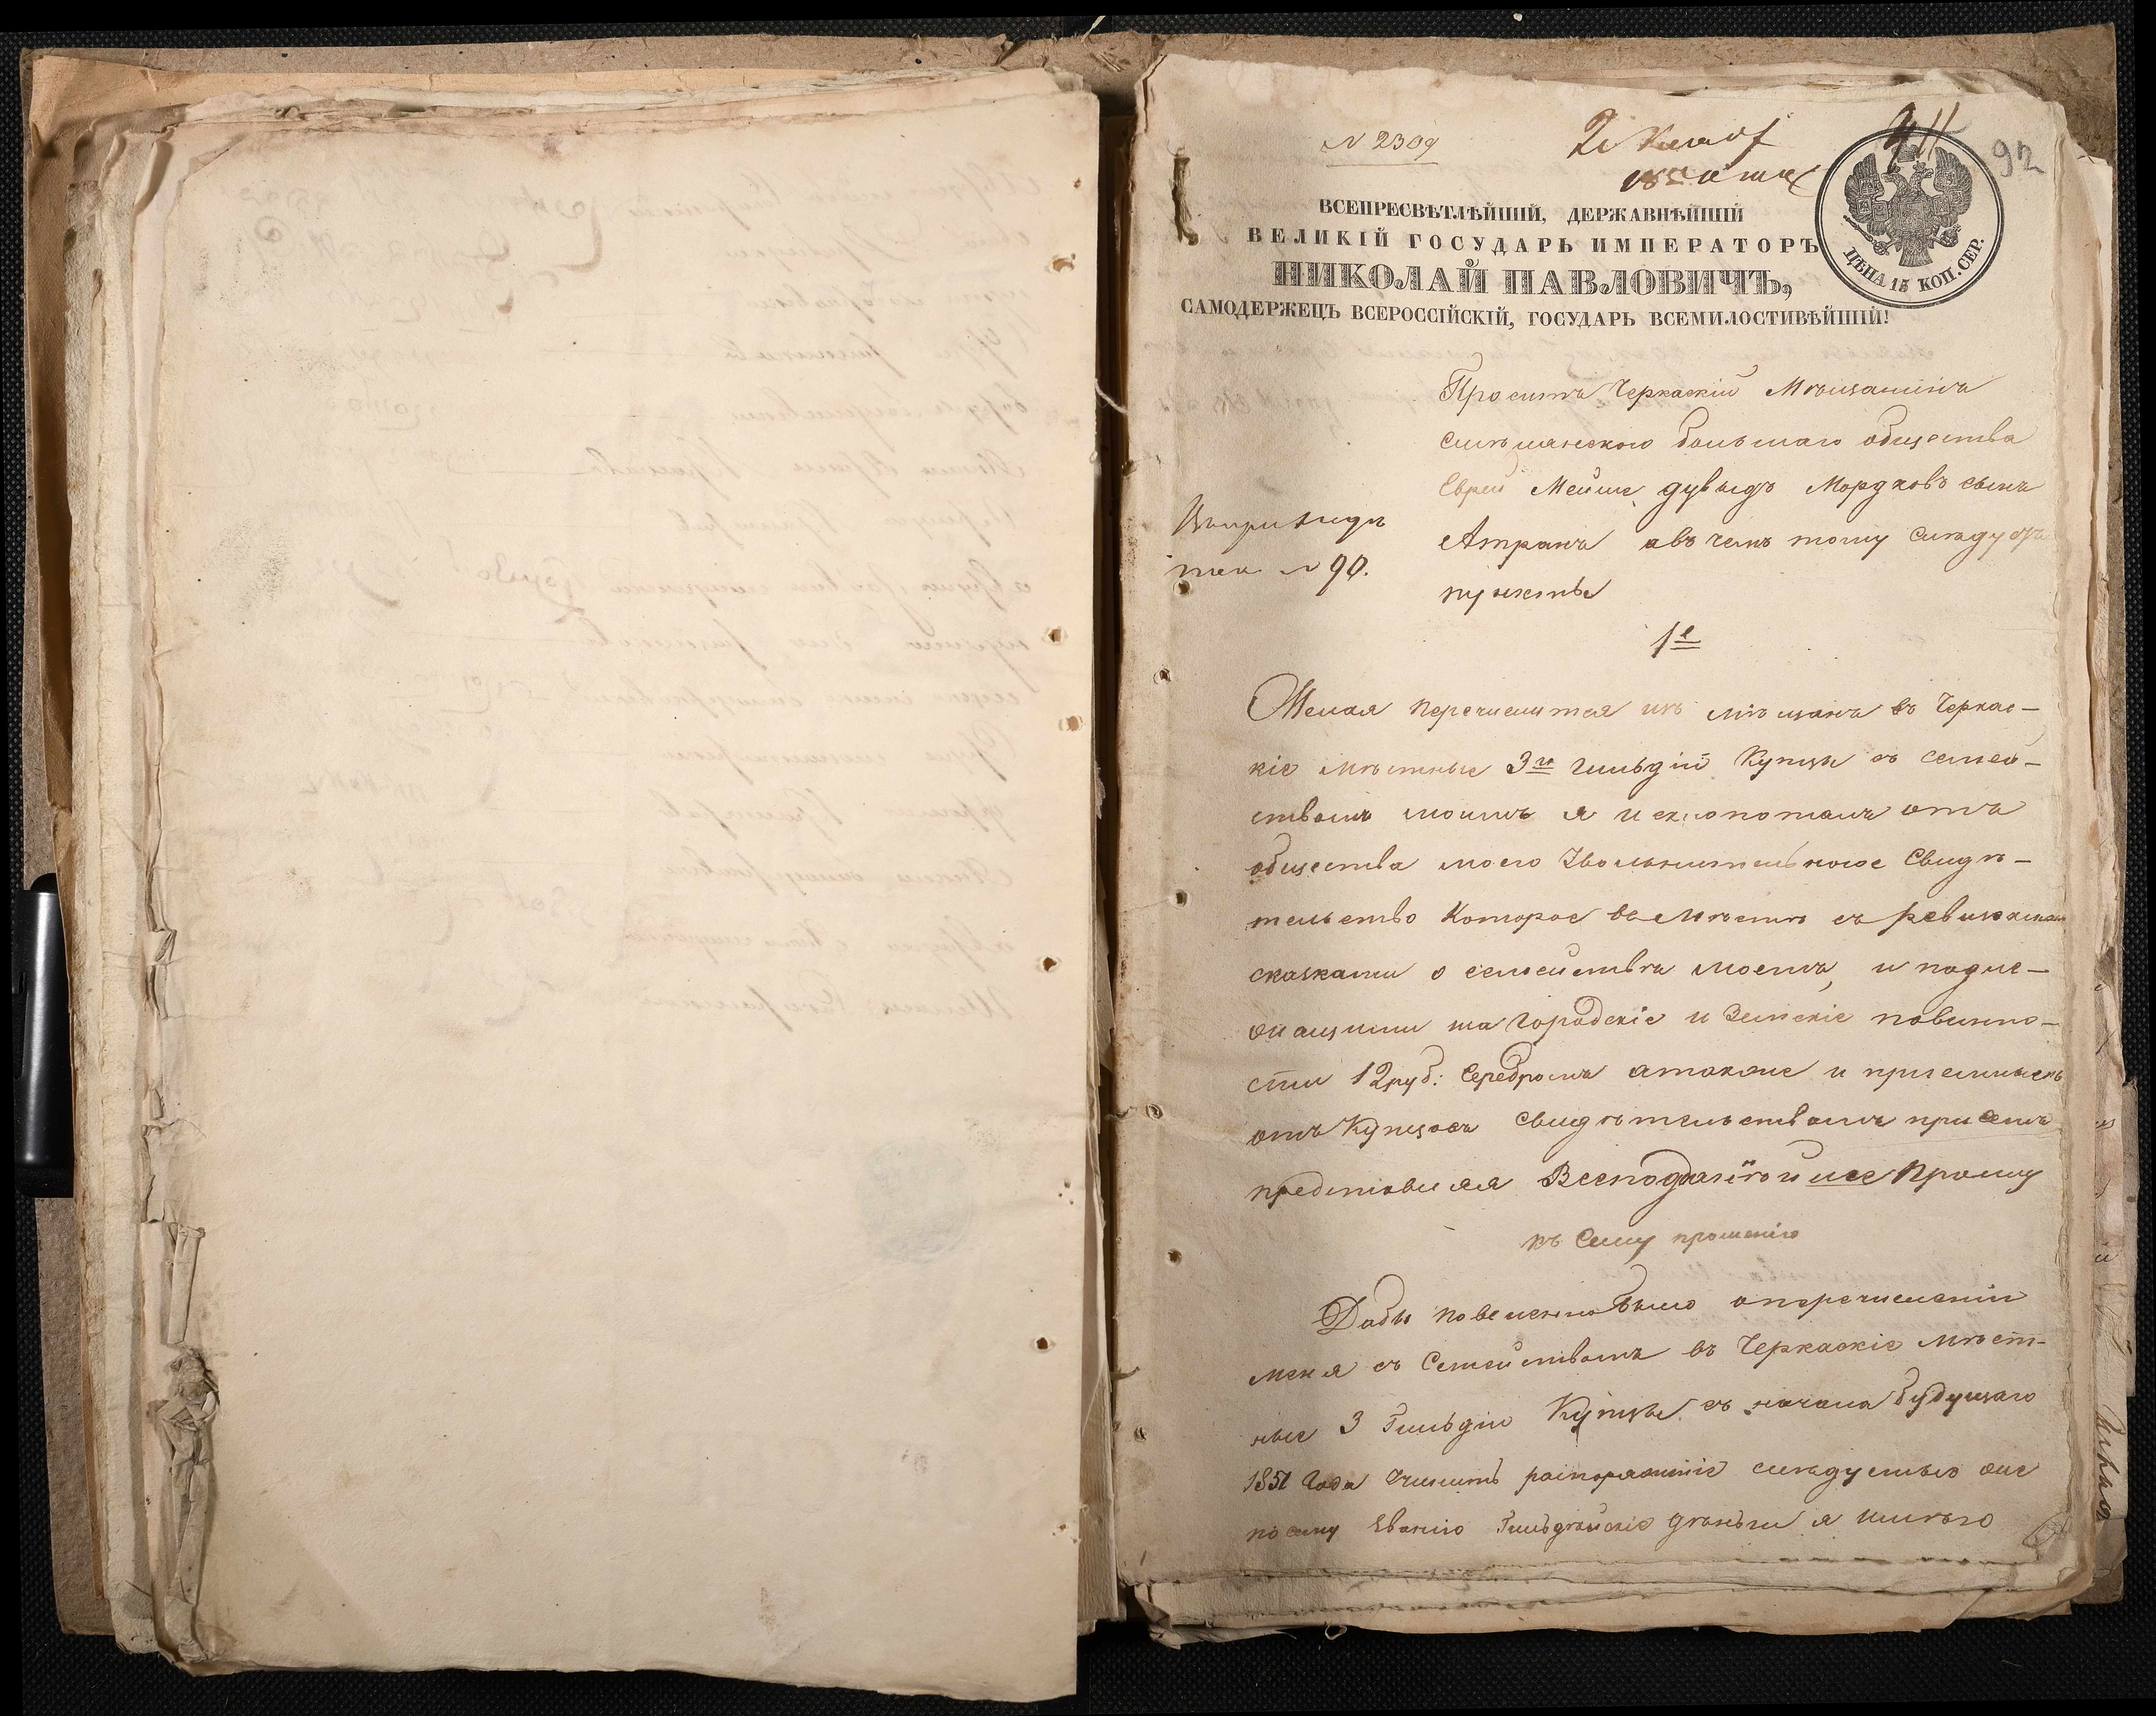 N 2309
92
ВСЕПРЕСВѢТЛѢЙШІЙ, ДЕРЖАВНѢЙШІЙ
ВЕЛИКІЙ ГОСУДАРЬ ИМПЕРАТОРЪ
НИКОЛАЙ ПАВЛОВИЧЪ,
САМОДЕРЖЕЦЪ ВСЕРОССІЙСКІЙ, ГОСУДАРЬ ВСЕМИЛОСТИВѢЙШІЙ!
ЦѢНА 15 КОП. СЕР.
Проситъ Черкаскій Мѣщанинъ
смѣлянского большаго общества
Еврей Мейше дувыдъ Мордковъ сынъ
Атранъ авъ чемъ тому следуютъ
пункты
N 90.
1е
Желая перечислится изъ мѣщанъ въ Черкас-
кіе мѣстные 3й гильдій Купцы съ семей-
ствомъ моимъ я исхлопоталъ отъ
общества моего Увольнительное Свидѣ-
тельство Которое вмѣстѣ съ ревизскими
сказками о семействѣ моемъ, и подле-
жащими на городскіе и Земскіе повинно-
сти 12 руб: Серебромъ атакже и пріемнымъ
отъ Купцовъ Свидѣтельствомъ присемъ
представляя Всеподданѣйше Прошу
къ Сему прошенію
Дабы повеленно было оперечисленіи
меня съ Семействомъ въ Черкаскіе мѣст-
ные 3 Гильдіи Купцы съ начала будущаго
1851 Года Учинить распоряженіе следуемые же
по сему Званію Гильдейскіе деньги я имѣю